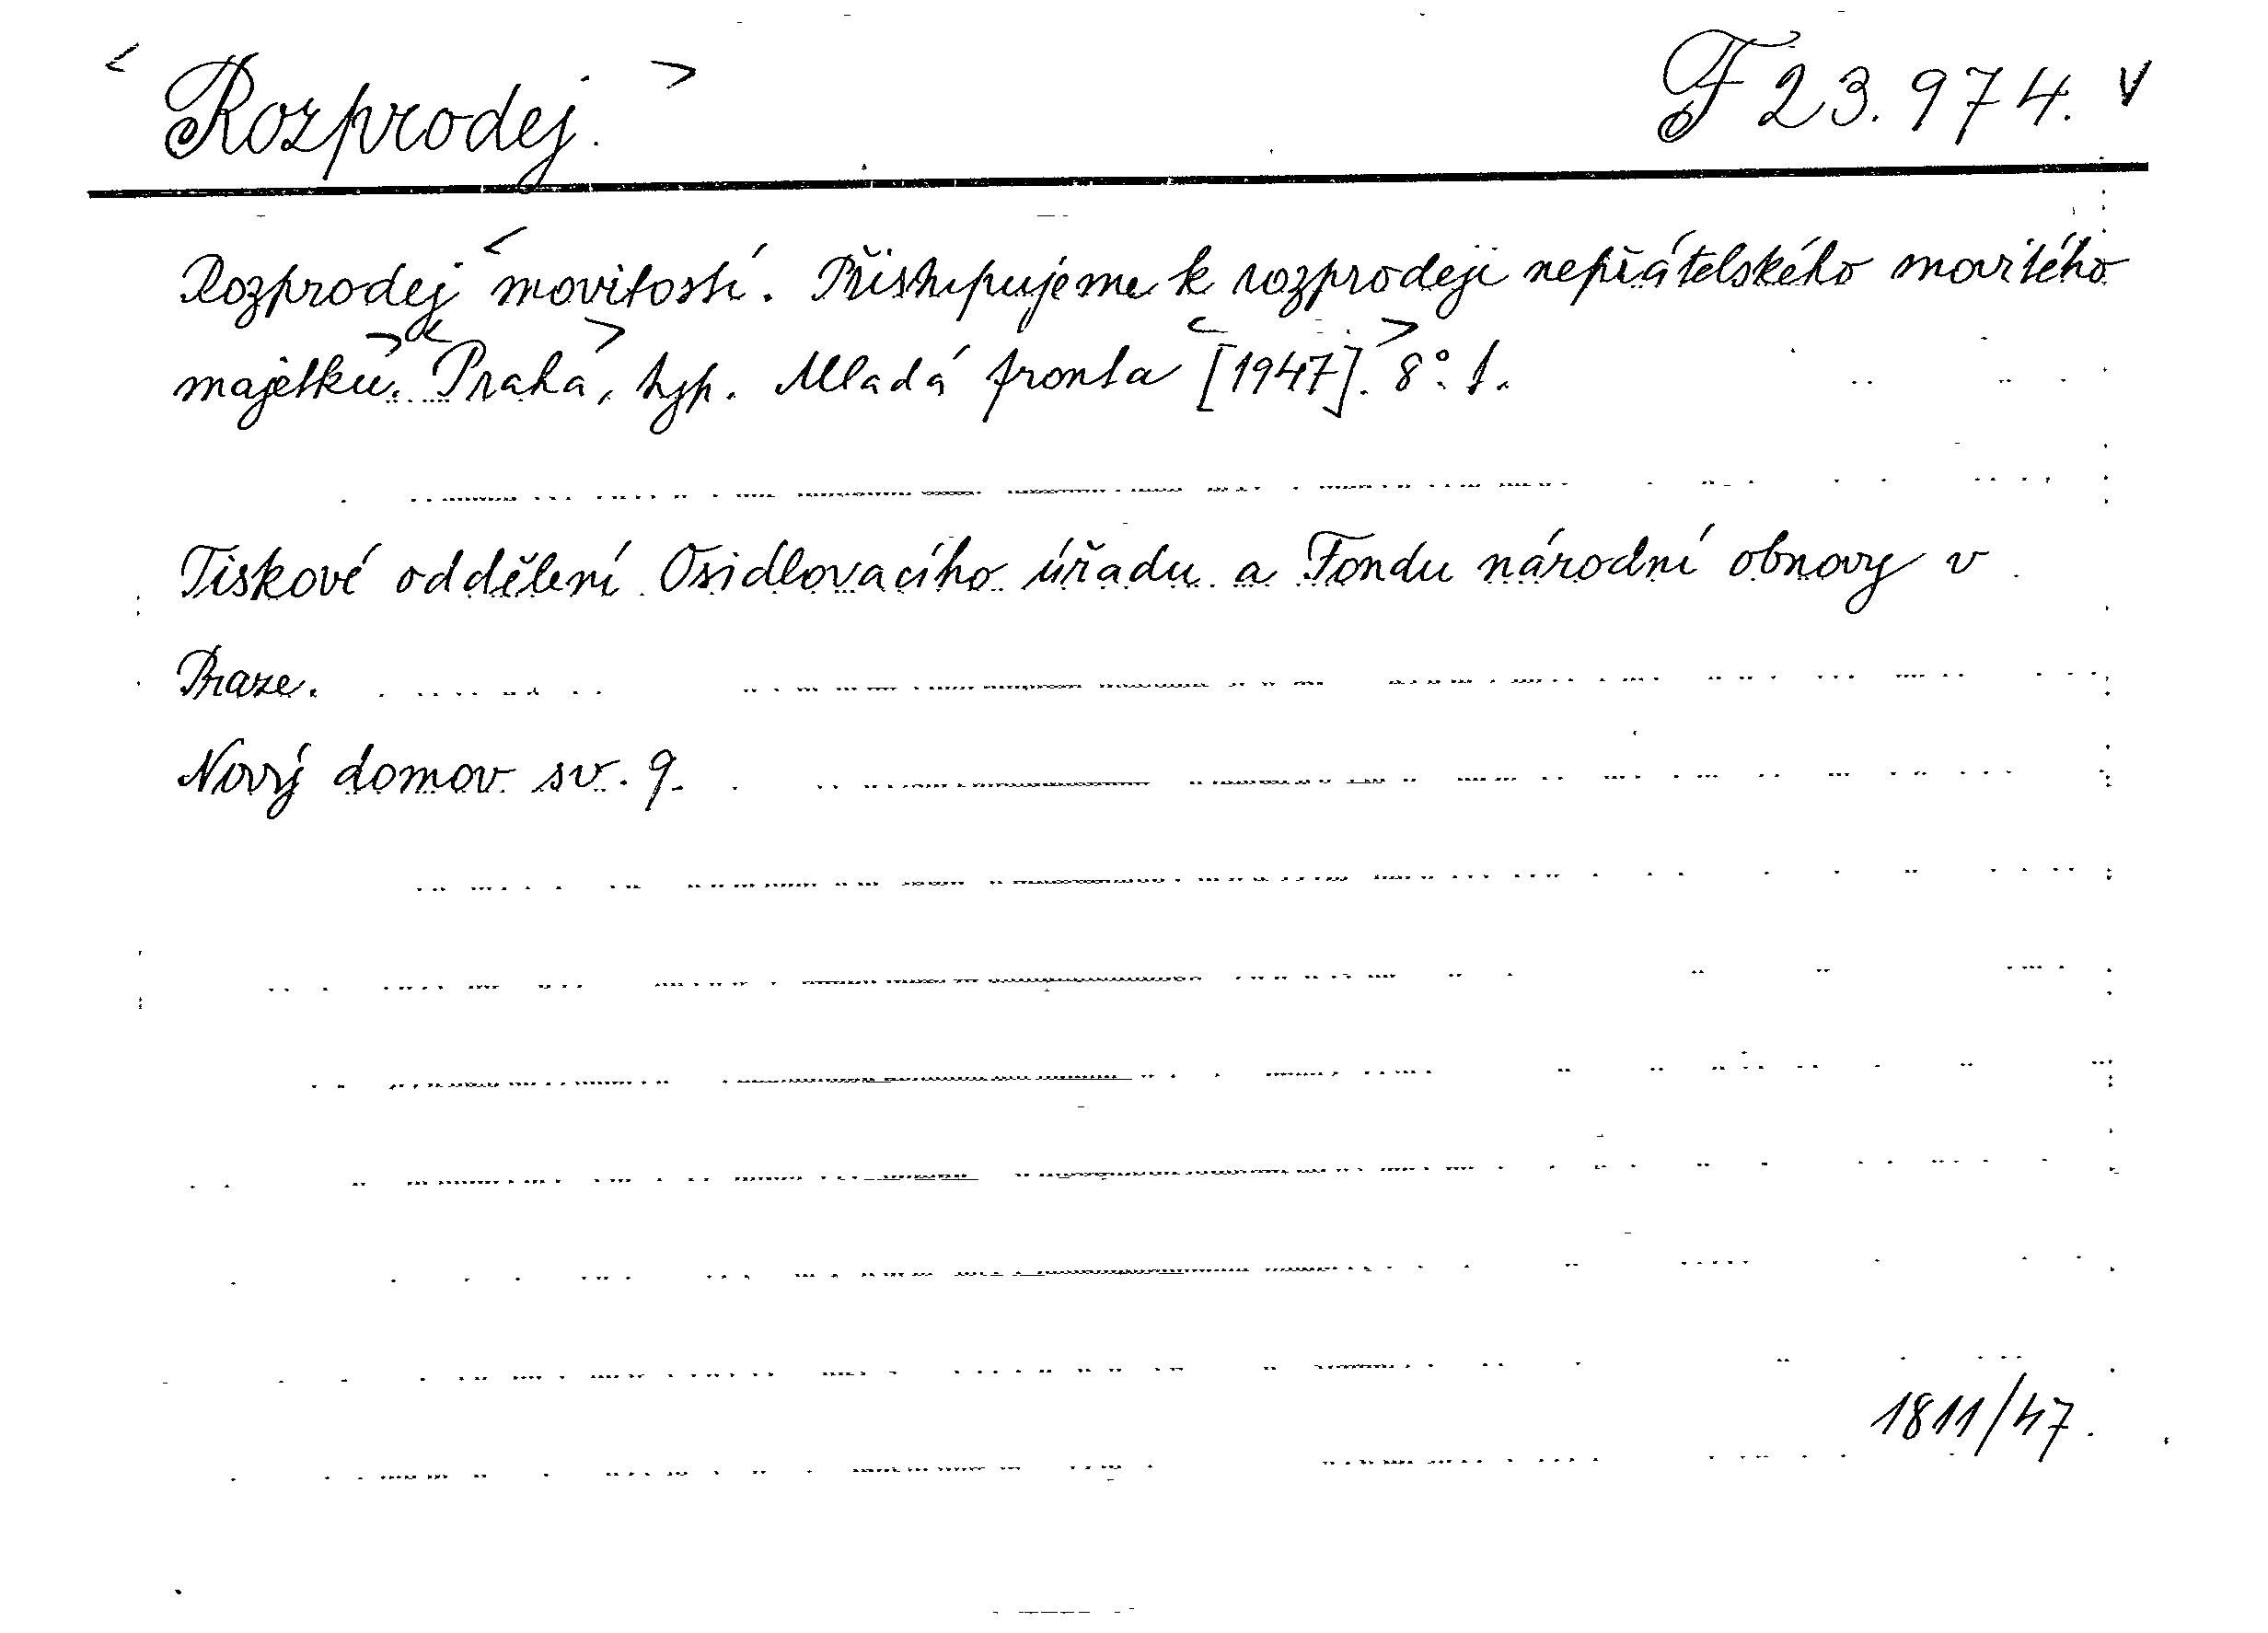 < Rozprodej. > F 23.974. v
Rozprodej < movitostí. Přistupujeme k rozprodeji nepřátelského movitého
majetku. > < Praha, > typ. Mladá fronta < [1947]. > 8°. 1.
Tiskové oddělení Osidlovacího úřadu a Fondu národní obnovy v
Praze.
Nový domov sv. 9.
1811/47.